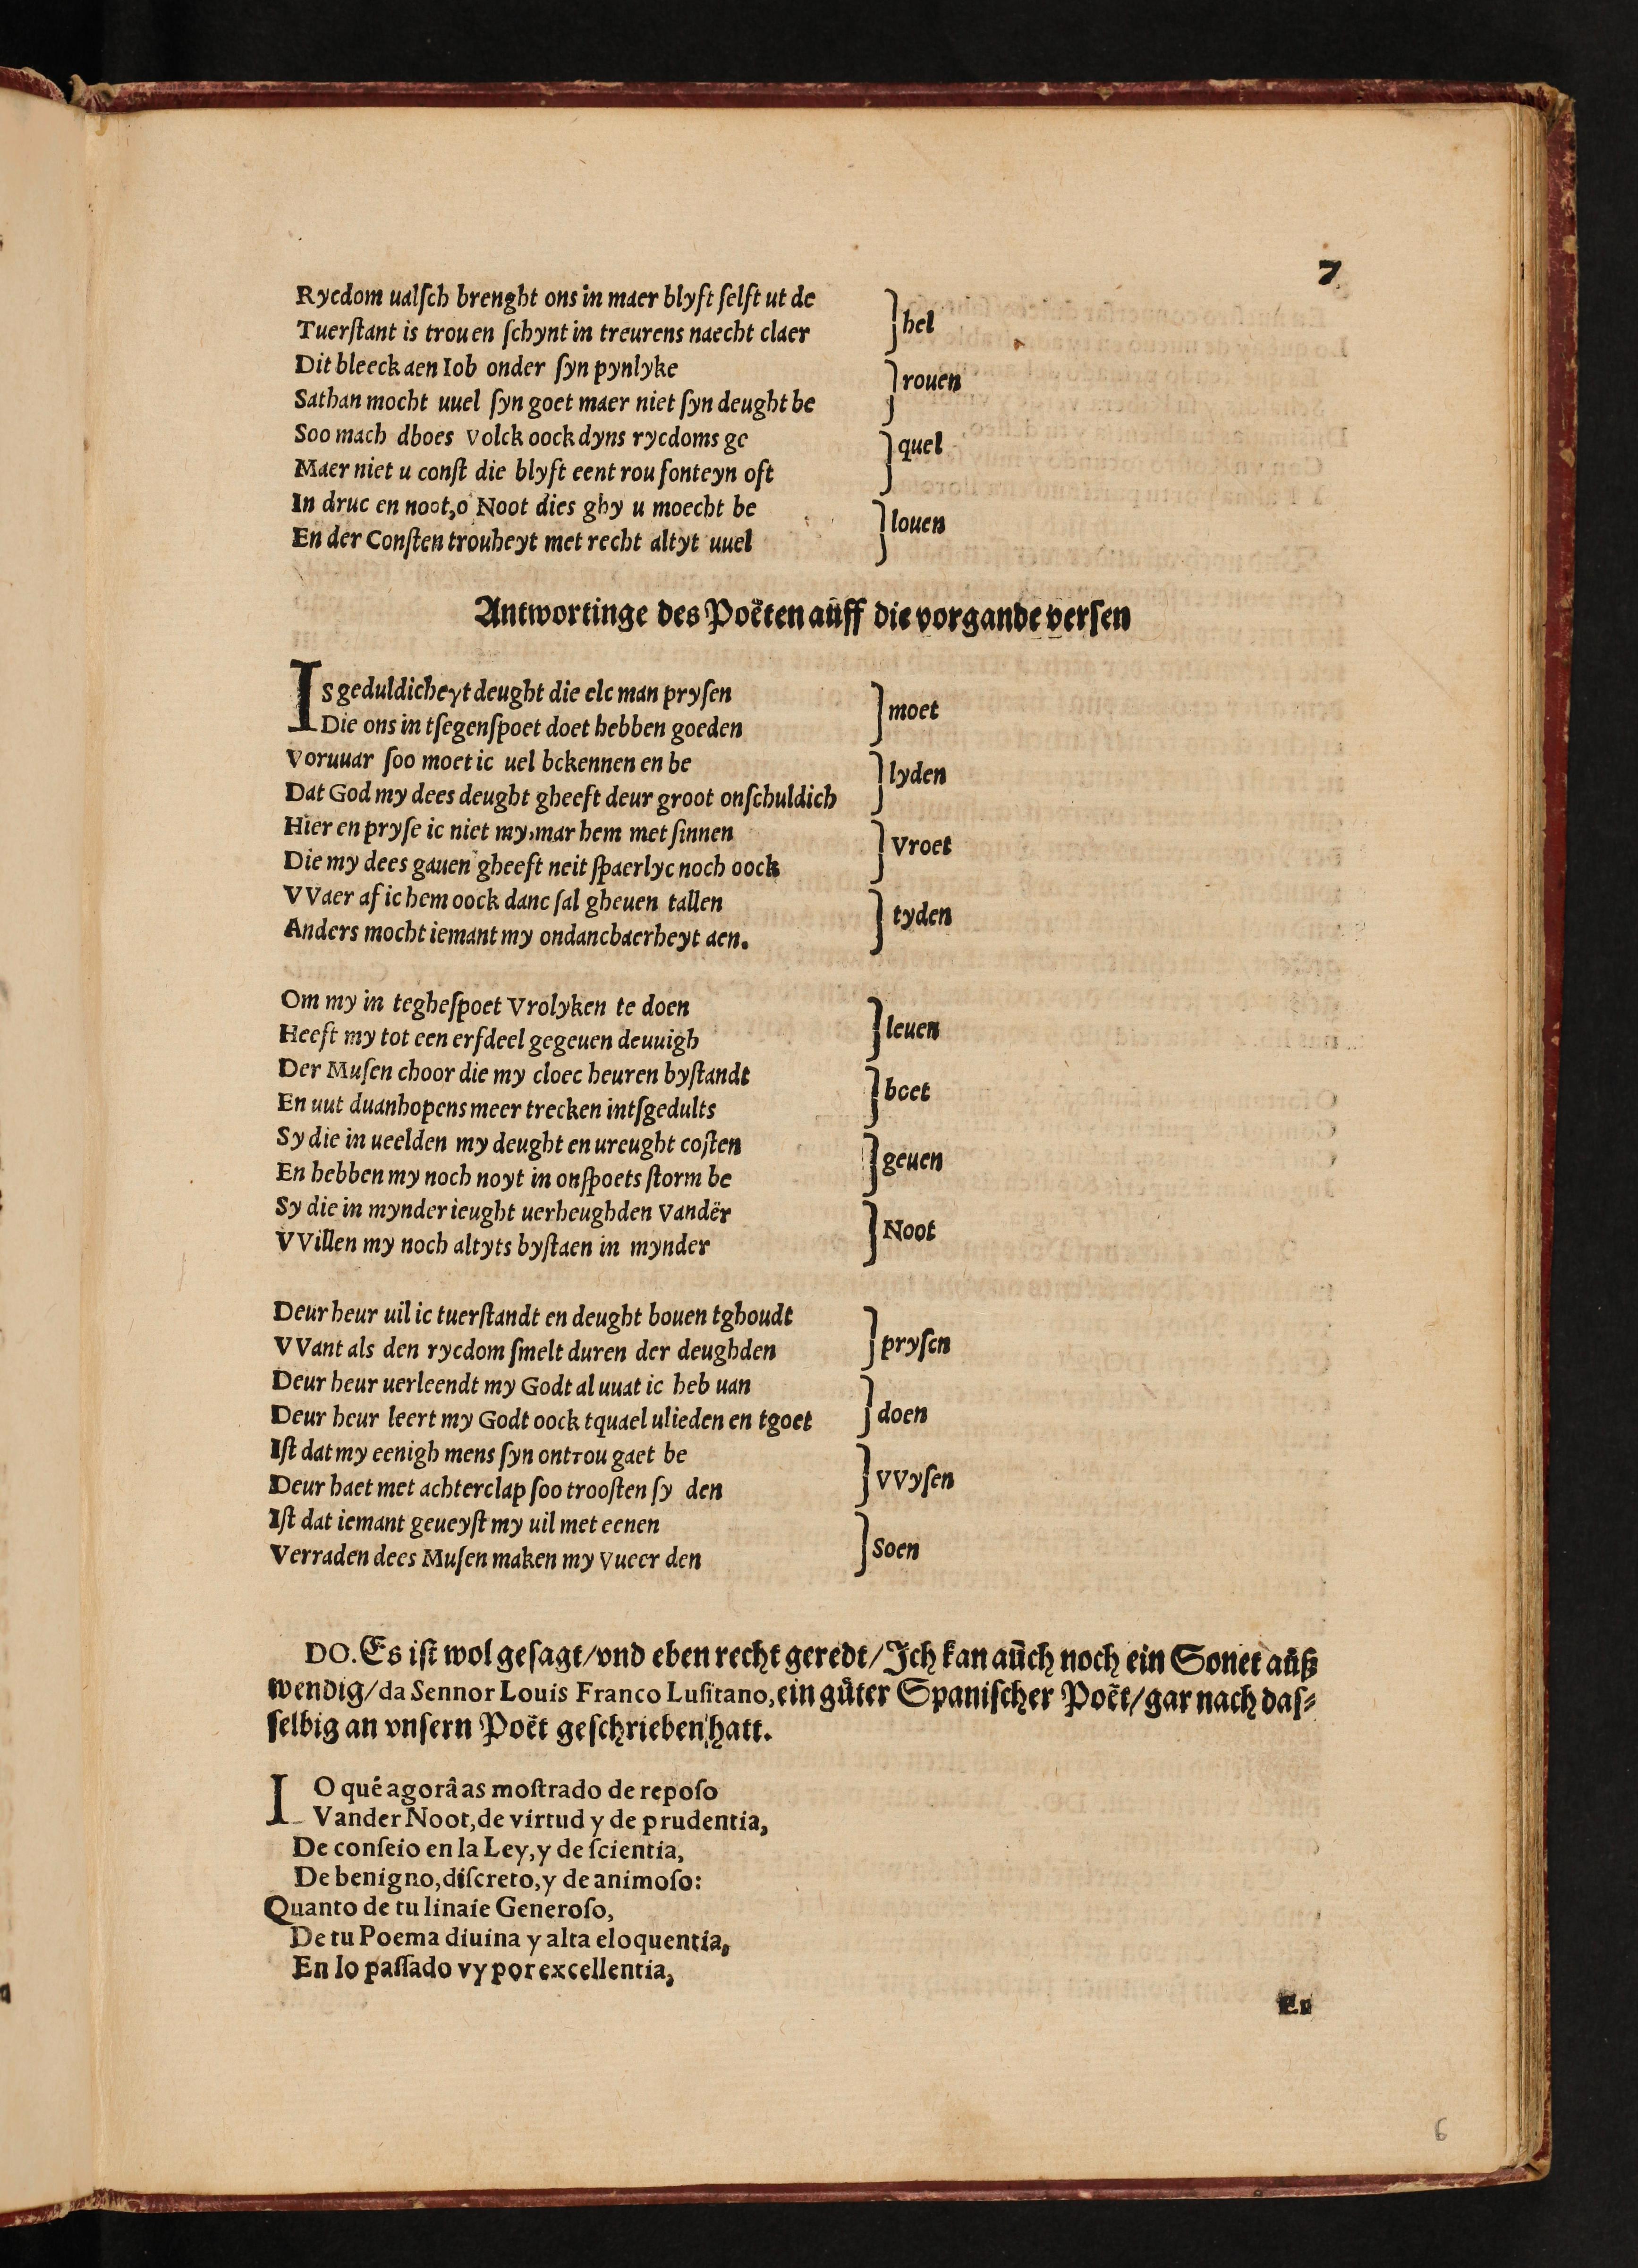 7
Rycdom ualſch brenght ons in maer blyft ſelft ut de
Tuerſtant is trou en ſchynt in treurens naecht claer
} hel
Dit bleeck aen Iob onder ſyn pynlyke
Sathan mocht uuel ſyn goet maer niet ſyn deught be
} rouen
Soo mach dboes volck oock dyns rycdoms ge
Maer niet u conſt die blyft eent rou fonteyn oft
} quel
In druc en noot, o Noot dies ghy u moecht be
En der Conſten trouheyt met recht altyt uuel
} louen
Antwortinge des Poëten aůff die vorgande verſen
Is geduldicheyt deught die elc man pryſen
Die ons in tſegenſpoet doet hebben goeden
} moet
Voruuar ſoo moet ic uel bekennen en be
Dat God my dees deught gheeft deur groot onſchuldich
} lyden
Hier en pryſe ic niet my, mar hem met ſinnen
Die my dees gauen gheeft neit ſpaerlyc noch oock
} Vroet
VVaer af ic hem oock danc ſal gheuen tallen
Anders mocht iemant my ondancbaerheyt aen.
} tyden
Om my in tegheſpoet Vrolyken te doen
Heeft my tot een erfdeel gegeuen deuuigh
} leuen
Der Muſen choor die my cloec heuren byſtandt
En uut duanhopens meer trecken intſgedults
} boet
Sy die in ueelden my deught en ureught coſten
En hebben my noch noyt in onſpoets ſtorm be
} geuen
Sy die in mynder ieught uerheughden Vandër
VVillen my noch altyts byſtaen in mynder
} Noot
Deur heur uil ic tuerſtandt en deught bouen tghoudt
VVant als den rycdom ſmelt duren der deughden
} pryſen
Deur heur uerleendt my Godt al uuat ic heb uan
Deur heur leert my Godt oock tquael ulieden en tgoet
} doen
Iſt dat my eenigh mens ſyn ontrou gaet be
Deur haet met achterclap ſoo trooſten ſy den
} VVyſen
Iſt dat iemant geueyſt my uil met eenen
Verraden dees Muſen maken my Vueer den
} Soen
DO. Es iſt wol geſagt/vnd eben recht geredt/Ich kan aůch noch ein Sonet aůß
wendig/da Sennor Louis Franco Luſitano, ein gůter Spaniſcher Poët/gar nach daſ⸗
ſelbig an vnſern Poët geſchrieben hatt.
IO qué agorâ as moſtrado de repoſo
Vander Noot, de virtud y de prudentia,
De conſeio en la Ley, y de ſcientia,
De benigno, diſcreto, y de animoſo:
Quanto de tu linaie Generoſo,
De tu Poema diuina y alta eloquentia,
En lo paſſado vy por excellentia,
En
6